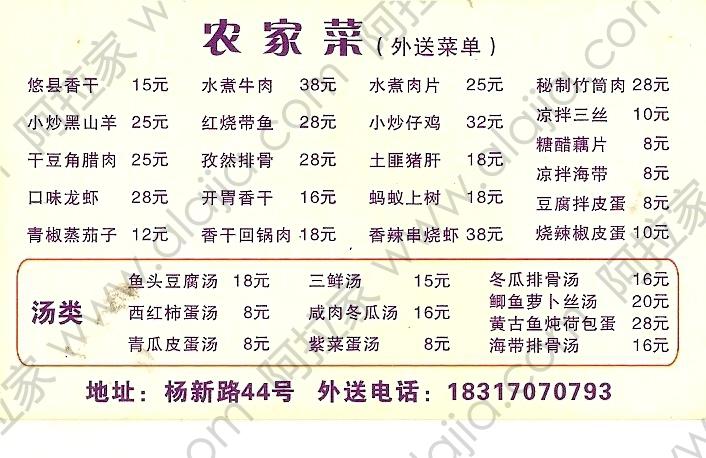 农家菜（外送菜单）
悠县香干 15元 水煮牛肉 38元 水煮肉片 25元 秘制竹筒肉 28元
小炒黑山羊 25元 红烧带鱼 28元 小炒仔鸡 32元 凉拌三丝 10元
糖醋藕片 8元
干豆角腊肉 25元 孜然排骨 28元 土匪猪肝 18元 凉拌海带 8元
口味龙虾 28元 开胃香干 16元 蚂蚁上树 18元 豆腐拌皮蛋 8元
青椒蒸茄子 12元 香干回锅肉 18元 香辣串烧虾 38元 烧辣椒皮蛋 10元
汤类
鱼头豆腐汤 18元 三鲜汤 15元 冬瓜排骨汤 16元
鲫鱼萝卜丝汤 20元
西红柿蛋汤 8元 咸肉冬瓜汤 16元 黄古鱼炖荷包蛋 28元
青瓜皮蛋汤 8元 紫菜蛋汤 8元 海带排骨汤 16元
地址：杨新路44号 外送电话：18317070793
阿拉家 www.alajia.com